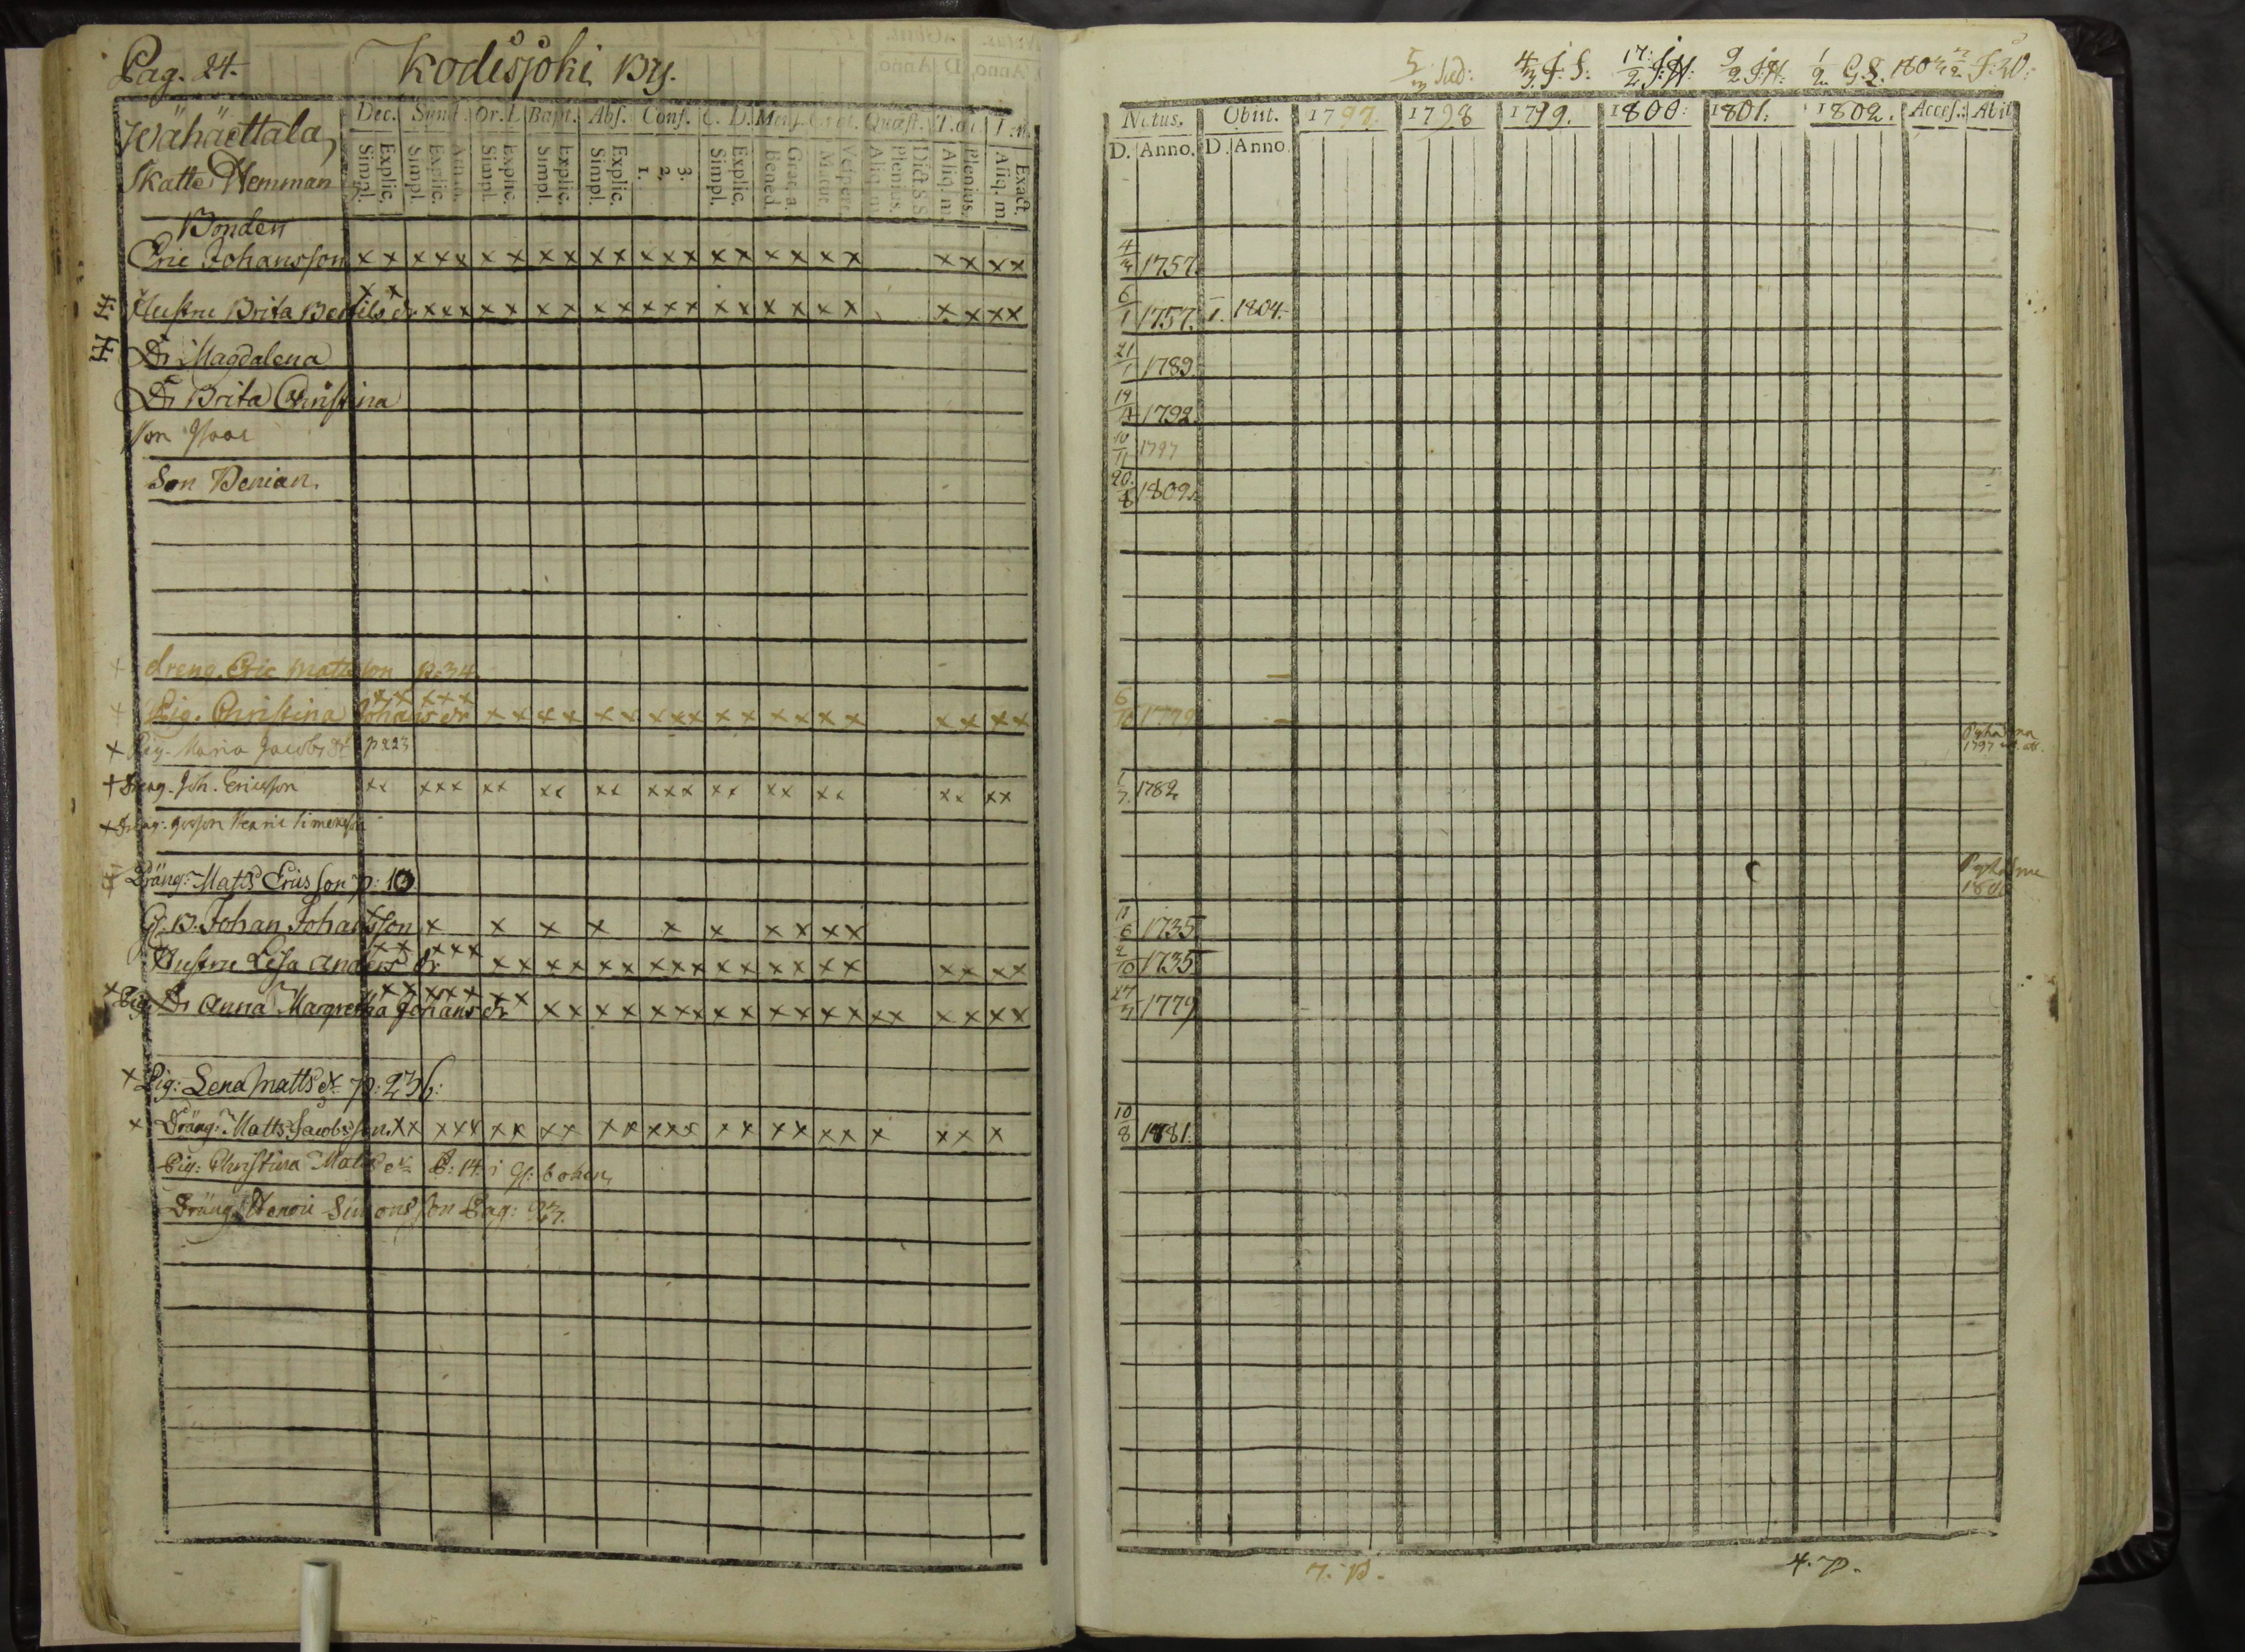 Pag. 24. Kodisjoki By.
Wähäettala
Skatte Hemman
Dec. Symb. Or. D. Bapt. Abs. Conf. C. D. Mens. Quæst.
Simpl. Explic. Simpl. Explic. Athan. Simpl. Explic. Simpl. Explic. Simpl. Explic. 1. 2. 3. Simpl. Explic. Bened. Grat. a. Matut. Vesper. Aliq. m. Plenius. Dict. S. S. Aliq. m. Plenius. Aliq. m. Exact.
Bonden
Eric Johansson x x x x x x x x x x x x x x x x x x x x x x x
Hustru Brita Bertils dr x x x x x x x x x x x x x x x x x x x x x x x
Dr Magdalena
Dr Brita Christina
Son Isaac
Son Benian.
dreng. Eric Mattsson p. 34
Pig. Christina Johans dr x x x x x x x x x x x x x x x x x x x x x x x
x Pig. Maria Jacobs dr p 223
+ Dreng. Joh. Ericsson x x x x x x x x x x x x x x x x x x x x x x x
Dräng: Matts Ericsson p: 10
Gl. B. Johan Johansson x x x x x x x x x x x
Hustru Lisa Anders dr x x x x x x x x x x x x x x x x x x x x x x x
x Pig Dr Anna Margretha Johans dr x x x x x x x x x x x x x x x x x x x x x x x x x
x Pig: Lena Matts dr p: 236:
x Dräng: Matts Jacobsson x x x x x x x x x x x x x x x x x x x x x x x
Pig: Christina Matts dr P: 14 i Gl: boken
Dräng Henric Simonsson Pag: 23.
5/3 4/3 J. S. 17/2 J: H: 9/2 J: H: 1/2 G. S. 1803
Natus. Obiit. 1797. 1798 1799. 1800: 1801. 1802. Acces. Abit
D. Anno. D. Anno.
4/3 1757.
6/1 1757. 1804.
21/1 1789.
19/4 1792.
10/11 1797
20/8 1802.
6/10 1779
1797
1/7 1782
11/6 1735
2/10 1735
1779
10/8 1781.
7. p. 4. p.